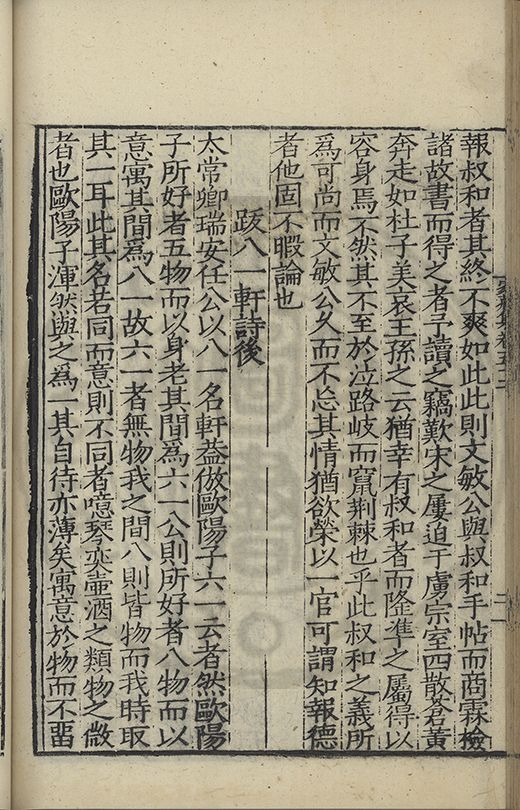 報叔和者其終不爽如此此則文敏公與叔和手帖而商霖檢
諸故書而得之者予讀之竊歎宋之屢迫于虜宗室四散蒼黃
奔走如杜子美哀王孫之云猶幸有叔和者而隆準之屬得以
容身焉不然其不至於泣路岐而竄荆棘也乎此叔和之義所
爲可尚而文敏公久而不忘其情猶欲榮以一官可謂知報德
者他固不暇論也
跋八一軒詩後
太常卿瑞安任公以八一名軒葢倣歐陽子六一云者然歐陽
子所好者五物而以身老其間爲六一公則所好者八物而以
意寓其間爲八一故六一者無物我之間八則皆物而我時取
其一耳此其名若同而意則不同者噫琴奕壷酒之類物之微
者也歐陽子渾然與之爲一其自待亦薄矣寓意於物而不畱